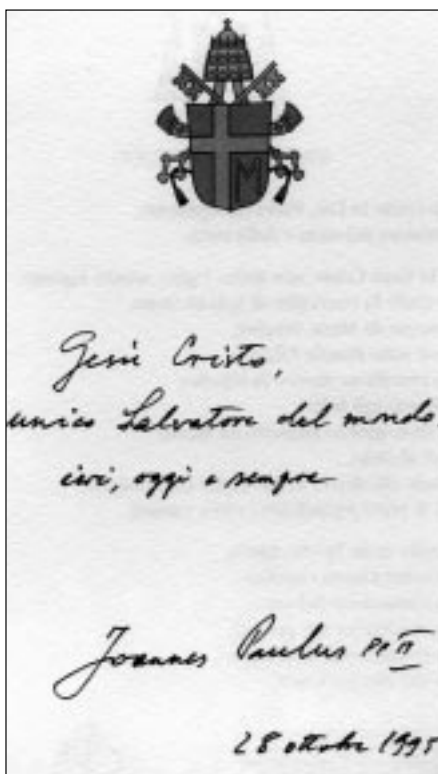 Gesù Cristo,
unico Salvatore del mondo,
ieri, oggi e sempre
Joannes Paulus PP II
28 ottobre 1995